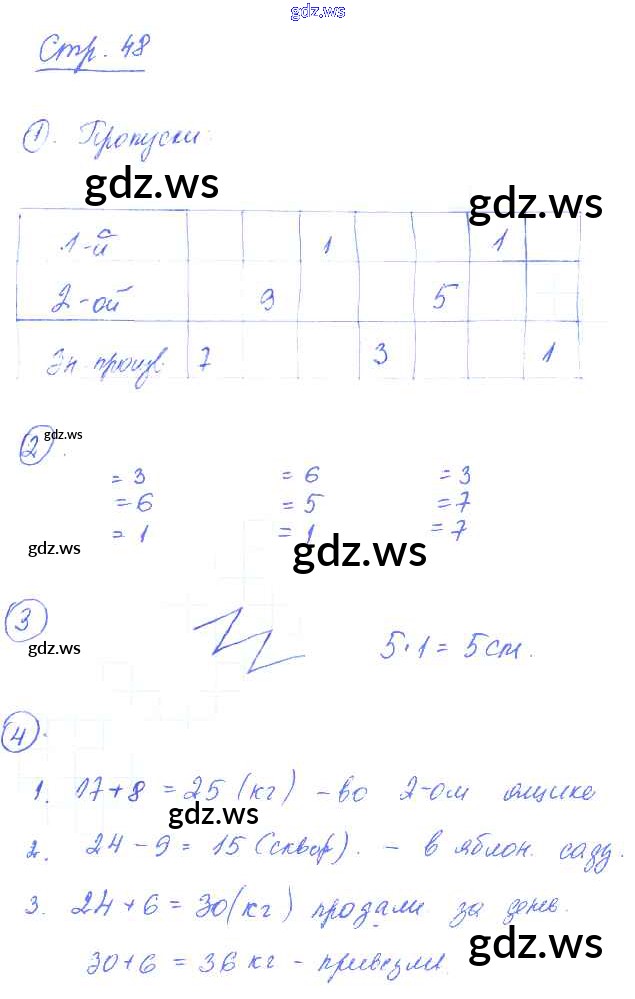 gdz.ws
Стр. 48
1. Пропуски:
gdz.ws
gdz.ws
1-й 1 1
2-ой 9 5
Зн. произв. 7 3 1
2.
gdz.ws
= 3 = 6 = 3
= 6 = 5 = 7
= 1 = 1 = 7
gdz.ws
gdz.ws
3
gdz.ws
5·1 = 5 см.
4.
1. 17+8 = 25 (кг) – во 2-ом ящике
gdz.ws
2. 24 – 9 = 15 (сквор). – в яблон. саду.
3. 24 + 6 = 30 (кг) продали за день.
gdz.ws
30+6 = 36 кг – привезли.